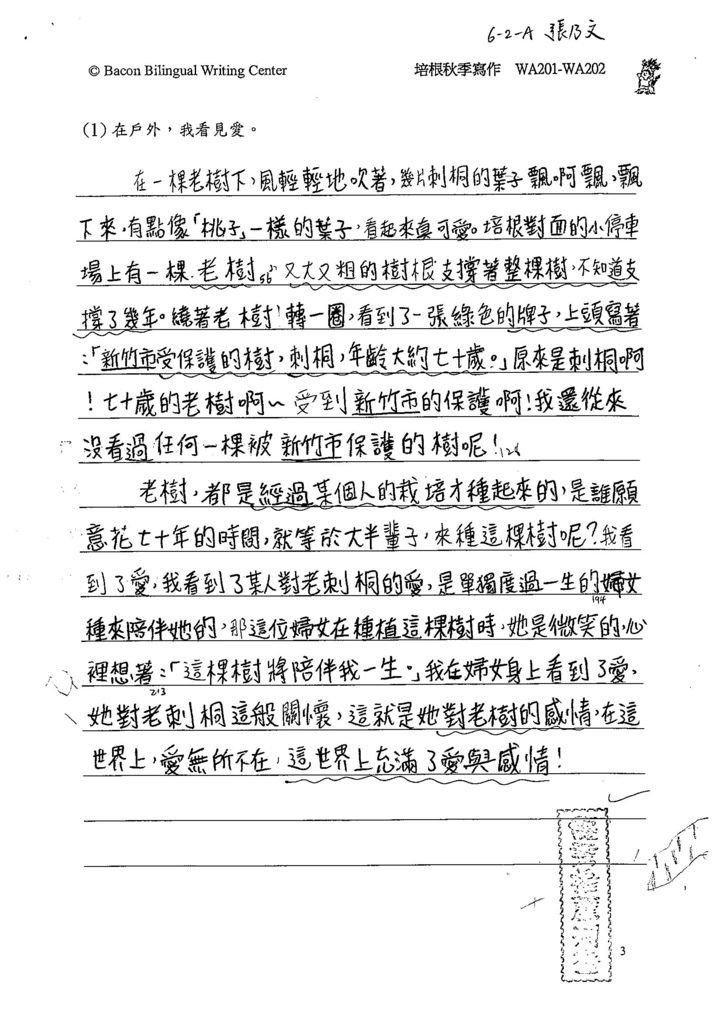 6-2-A 張乃文
© Bacon Bilingual Writing Center 培根秋季寫作 WA201-WA202
(1) 在戶外，我看見愛。
在一棵老樹下，風輕輕地吹著，幾片刺桐的葉子飄啊飄，飄
下來，有點像「桃子」一樣的葉子，看起來真可愛。培根對面的小停車
場上有一棵老樹。又大又粗的樹根支撐著整棵樹，不知道支
撐了幾年。繞著老樹轉一圈，看到了一張綠色的牌子，上頭寫著
：「新竹市受保護的樹，刺桐，年齡大約七十歲。」原來是刺桐啊
！七十歲的老樹啊～受到新竹市的保護啊！我還從來
沒看過任何一棵被新竹市保護的樹呢！126
老樹，都是經過某個人的栽培才種起來的，是誰願
意花七十年的時間，就等於大半輩子，來種這棵樹呢？我看
到了愛，我看到了某人對老刺桐的愛，是單獨度過一生的婦女
194
種來陪伴她的，那這位婦女在種植這棵樹時，她是微笑的，心
裡想著：「這棵樹將陪伴我一生。」我在婦女身上看到了愛，
213
她對老刺桐這般關懷，這就是她對老樹的感情，在這
世界上，愛無所不在，這世界上充滿了愛與感情！
3